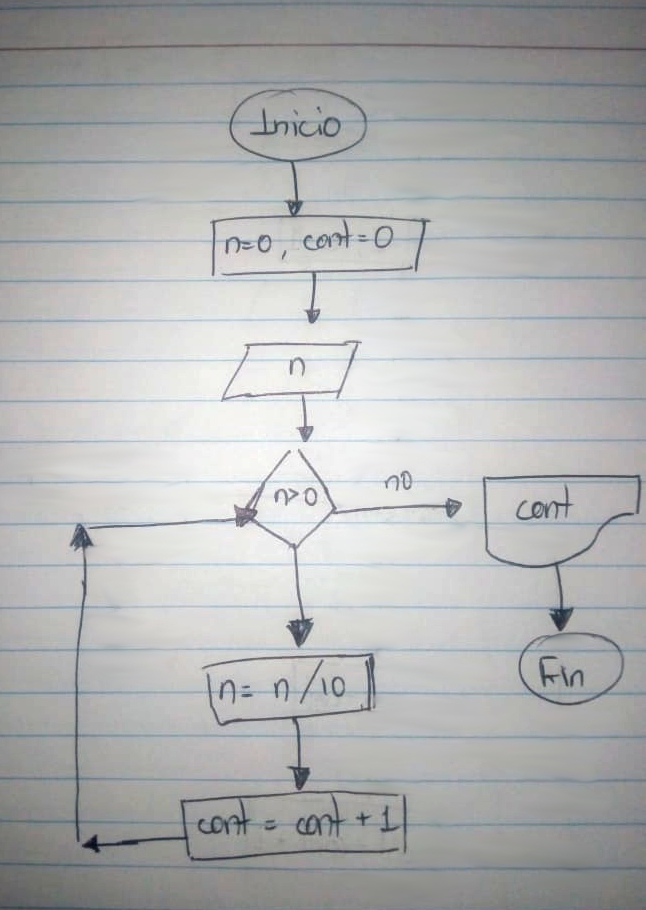 Inicio
n=0, cont=0
n
n>0
no
cont
n= n/10
Fin
cont = cont + 1